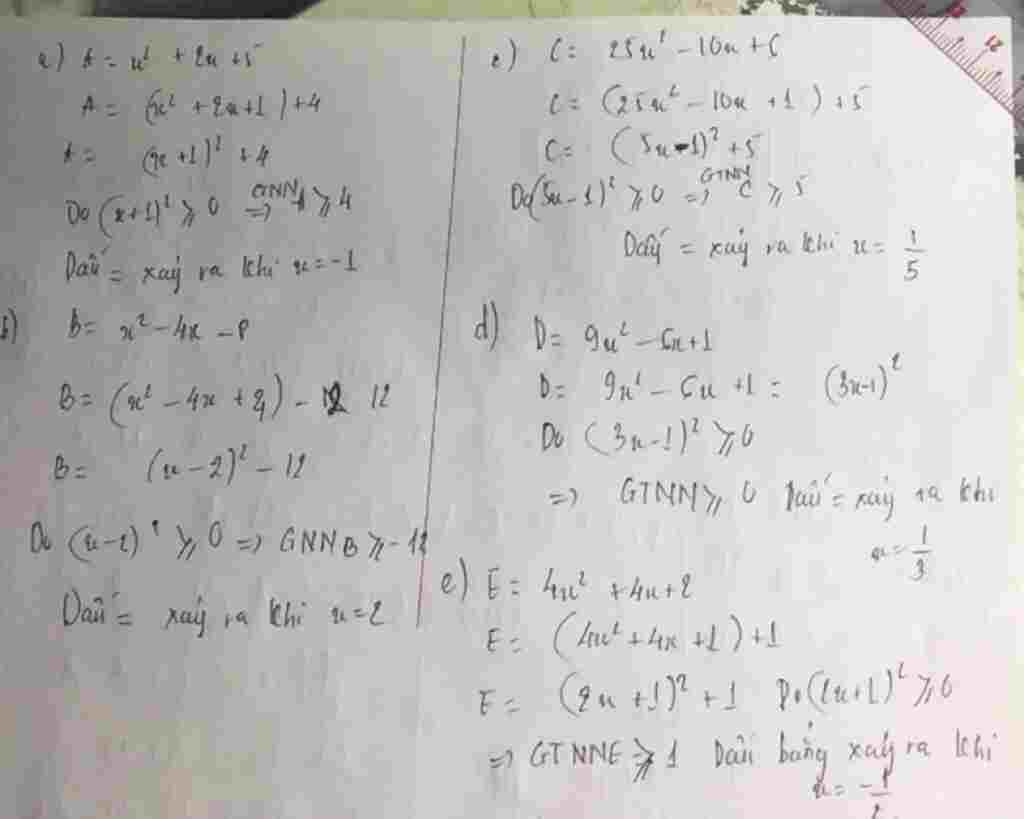 a) A = x² + 2x + 5
A = (x² + 2x + 1) + 4
A = (x + 1)² + 4
Do (x + 1)² ⩾ 0 => GNN A ⩾ 4
Dấu = xảy ra khi x = -1
b) B = x² - 4x - 8
B = (x² - 4x + 4) - 12
B = (x - 2)² - 12
Do (x - 2)² ⩾ 0 => GNN B ⩾ -12
Dấu = xảy ra khi x = 2
c) C = 25x² - 10x + 6
C = (25x² - 10x + 1) + 5
C = (5x - 1)² + 5
Do (5x - 1)² ⩾ 0 => GTNN C ⩾ 5
Dấu = xảy ra khi x = 1/5
d) D = 9x² - 6x + 1
D = 9x² - 6x + 1 = (3x - 1)²
Do (3x - 1)² ⩾ 0
=> GTNN ⩾ 0 Dấu = xảy ra khi
x = 1/3
e) E = 4x² + 4x + 2
E = (4x² + 4x + 1) + 1
E = (2x + 1)² + 1 Do (2x + 1)² ⩾ 0
=> GTNN E ⩾ 1 Dấu bằng xảy ra khi
x = -1/2